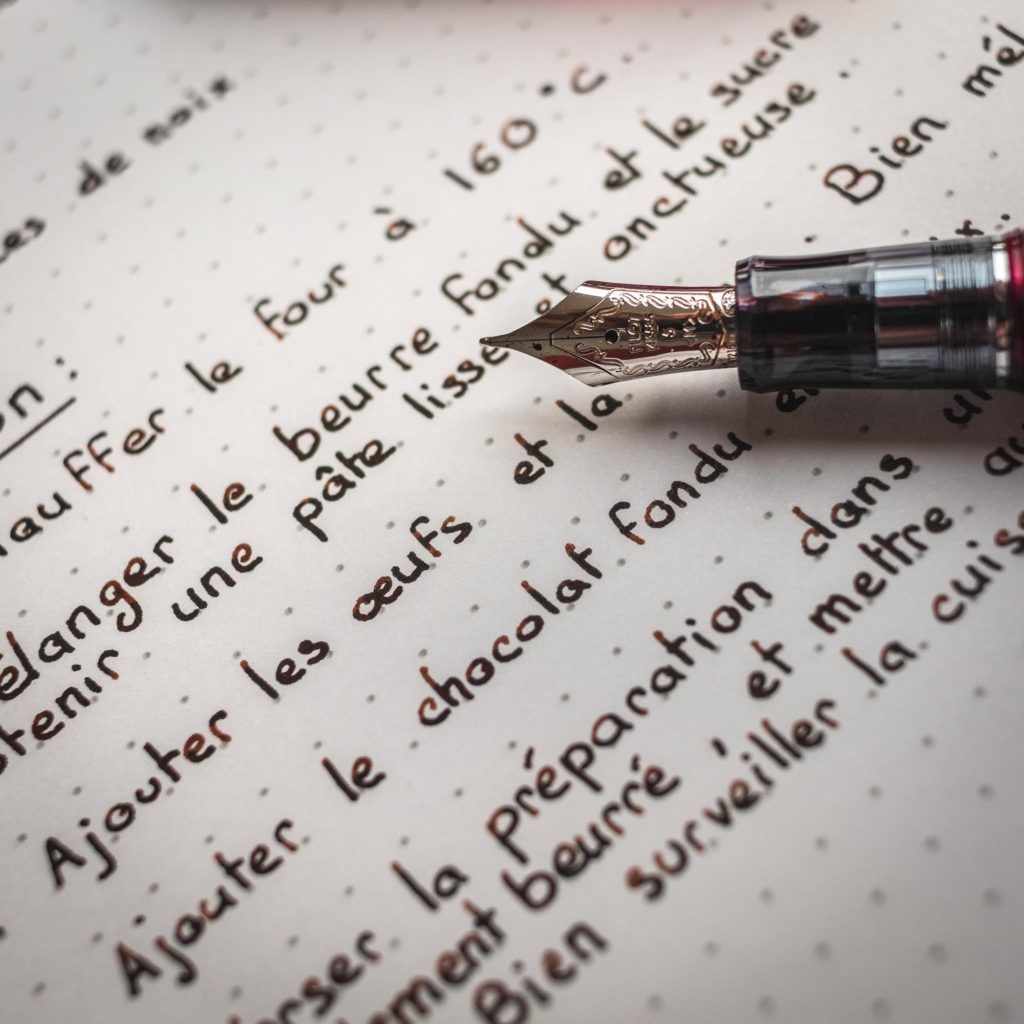 es de noix
on :
auffer le four à 160 °C.
élanger le beurre fondu et le sucre
tenir une pâte lisse et onctueuse.
Ajouter les œufs et la Bien mél
Ajouter le chocolat fondu
erser la préparation dans un
ement beurré, et mettre au
Bien surveiller la cuiss
PILOT
5